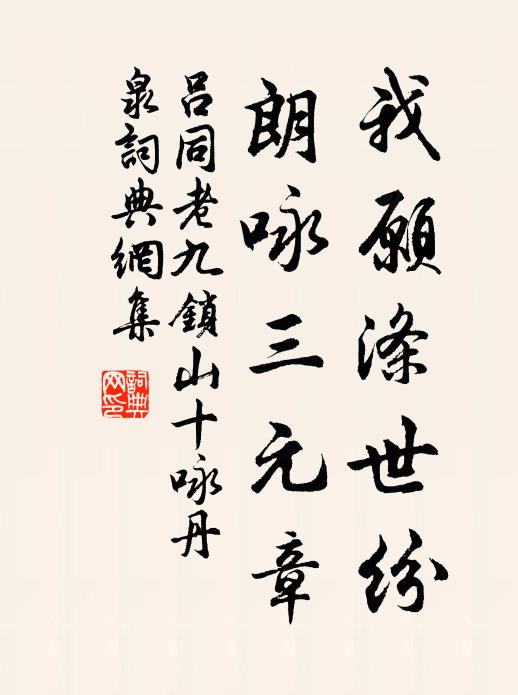 我願滌世紛
朗咏三元章
呂同老九鎖山十咏丹
泉詞典網集
詞典
网印